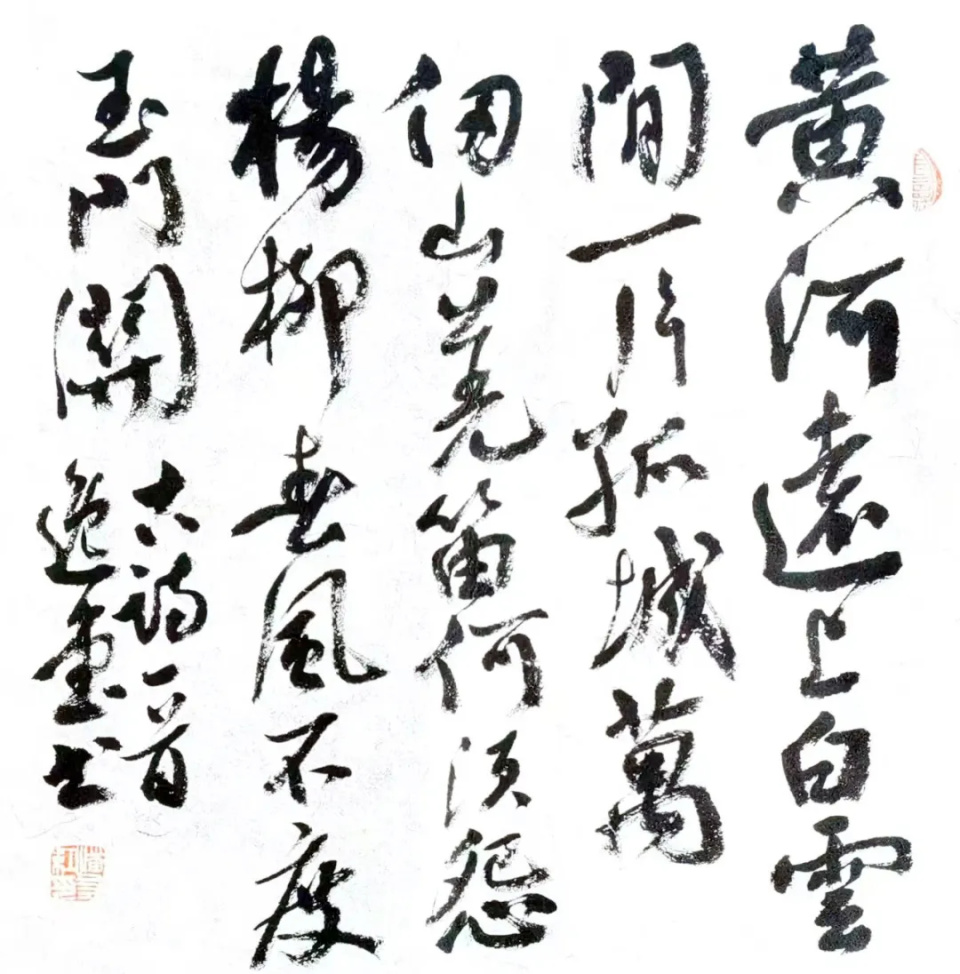 黄河遠上白雲
間一片孤城萬
仞山羌笛何須怨
楊柳春風不度
玉門關
古詩一首
逸重书